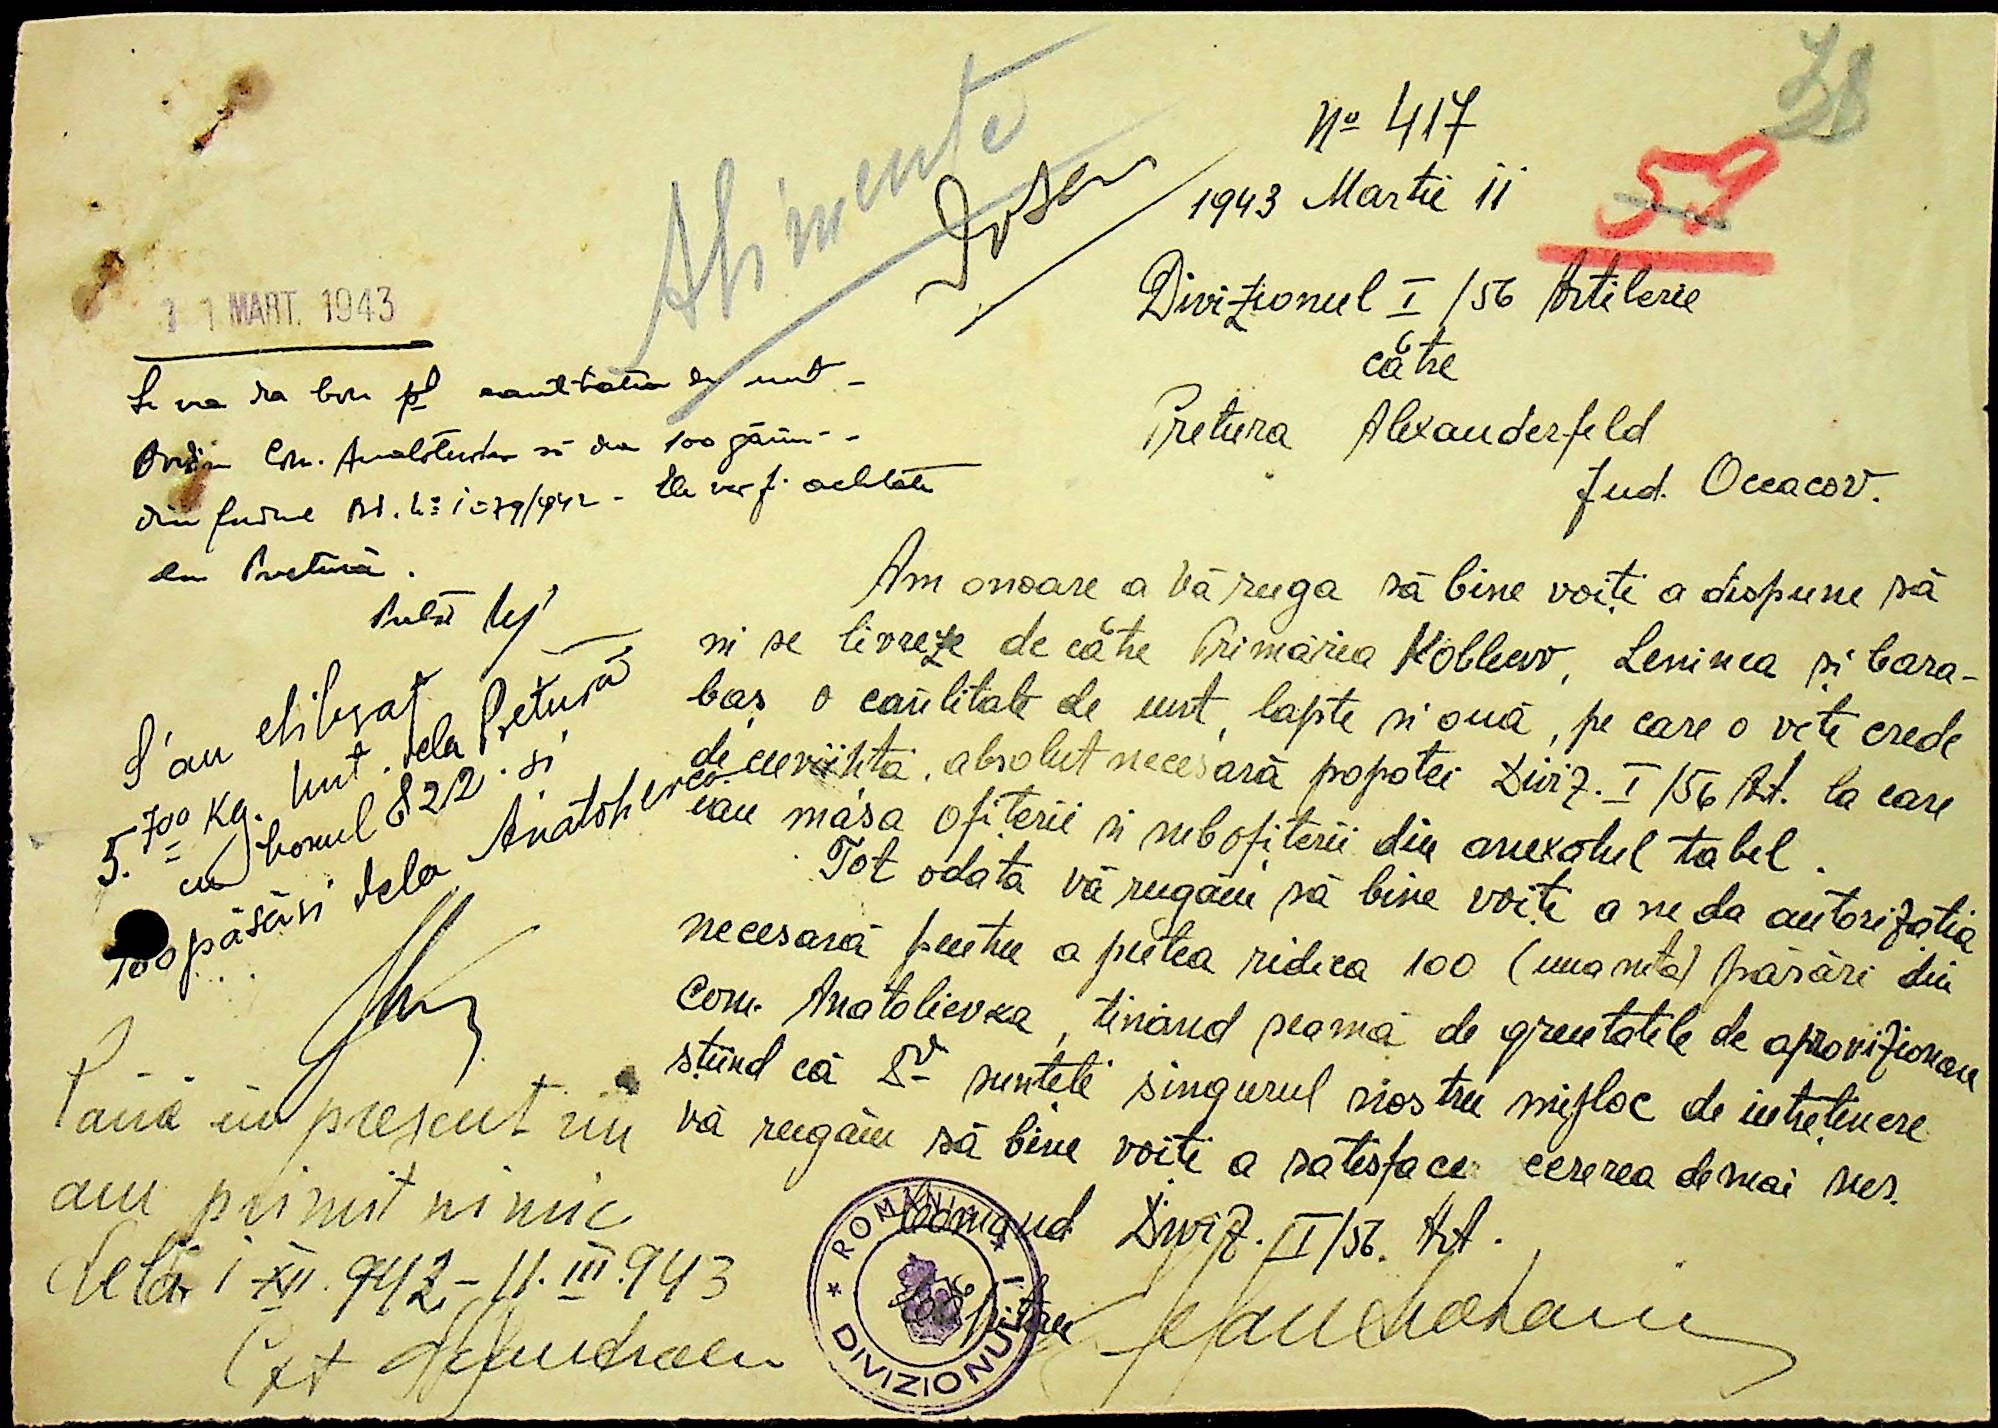 38
59
Alimente
Dosar
Nº 417
1943 Martie 11
Divizionul I /56 Artilerie
către
Pretura Alexanderfeld
Jud. Oceacov.
11 MART. 1943
Se va da bon pt cantitatea de unt -
Ordin Com. să dea 100 găini -
din Nº 1079/942 - Ele vor fi achitate
de Pretură.
S'au eliberat
5.700 Kg. unt. dela Pretură
cu bonul 822. și
100 păsări dela
Am onoare a vă ruga să bine voiți a dispune să
ni se livreze de către Primăria Koblewo, Leninca și Cara-
baș o cantitate de unt, lapte și ouă, pe care o veți crede
de cuviință, absolut necesară popotei Diviz. I /56 Art. la care
iau masa ofițerii și subofițerii din anexatul tabel.
Tot odată vă rugăm să bine voiți a ne da autorizația
necesară pentru a putea ridica 100 (una sută) păsări din
Com. Anatolievka, ținând seamă de greutatele de aprovizionare
știind că Dv sunteti singurul nostru mijloc de întreținere
vă rugăm să bine voiți a satisface cererea de mai sus.
Până în prezent nu
am primit nimic
dela 1 XII. 942 - 11. III. 943
Cpt
Comand Diviz. II/56. Art.
Căpitan
ROMÂNIA
DIVIZIONUL I